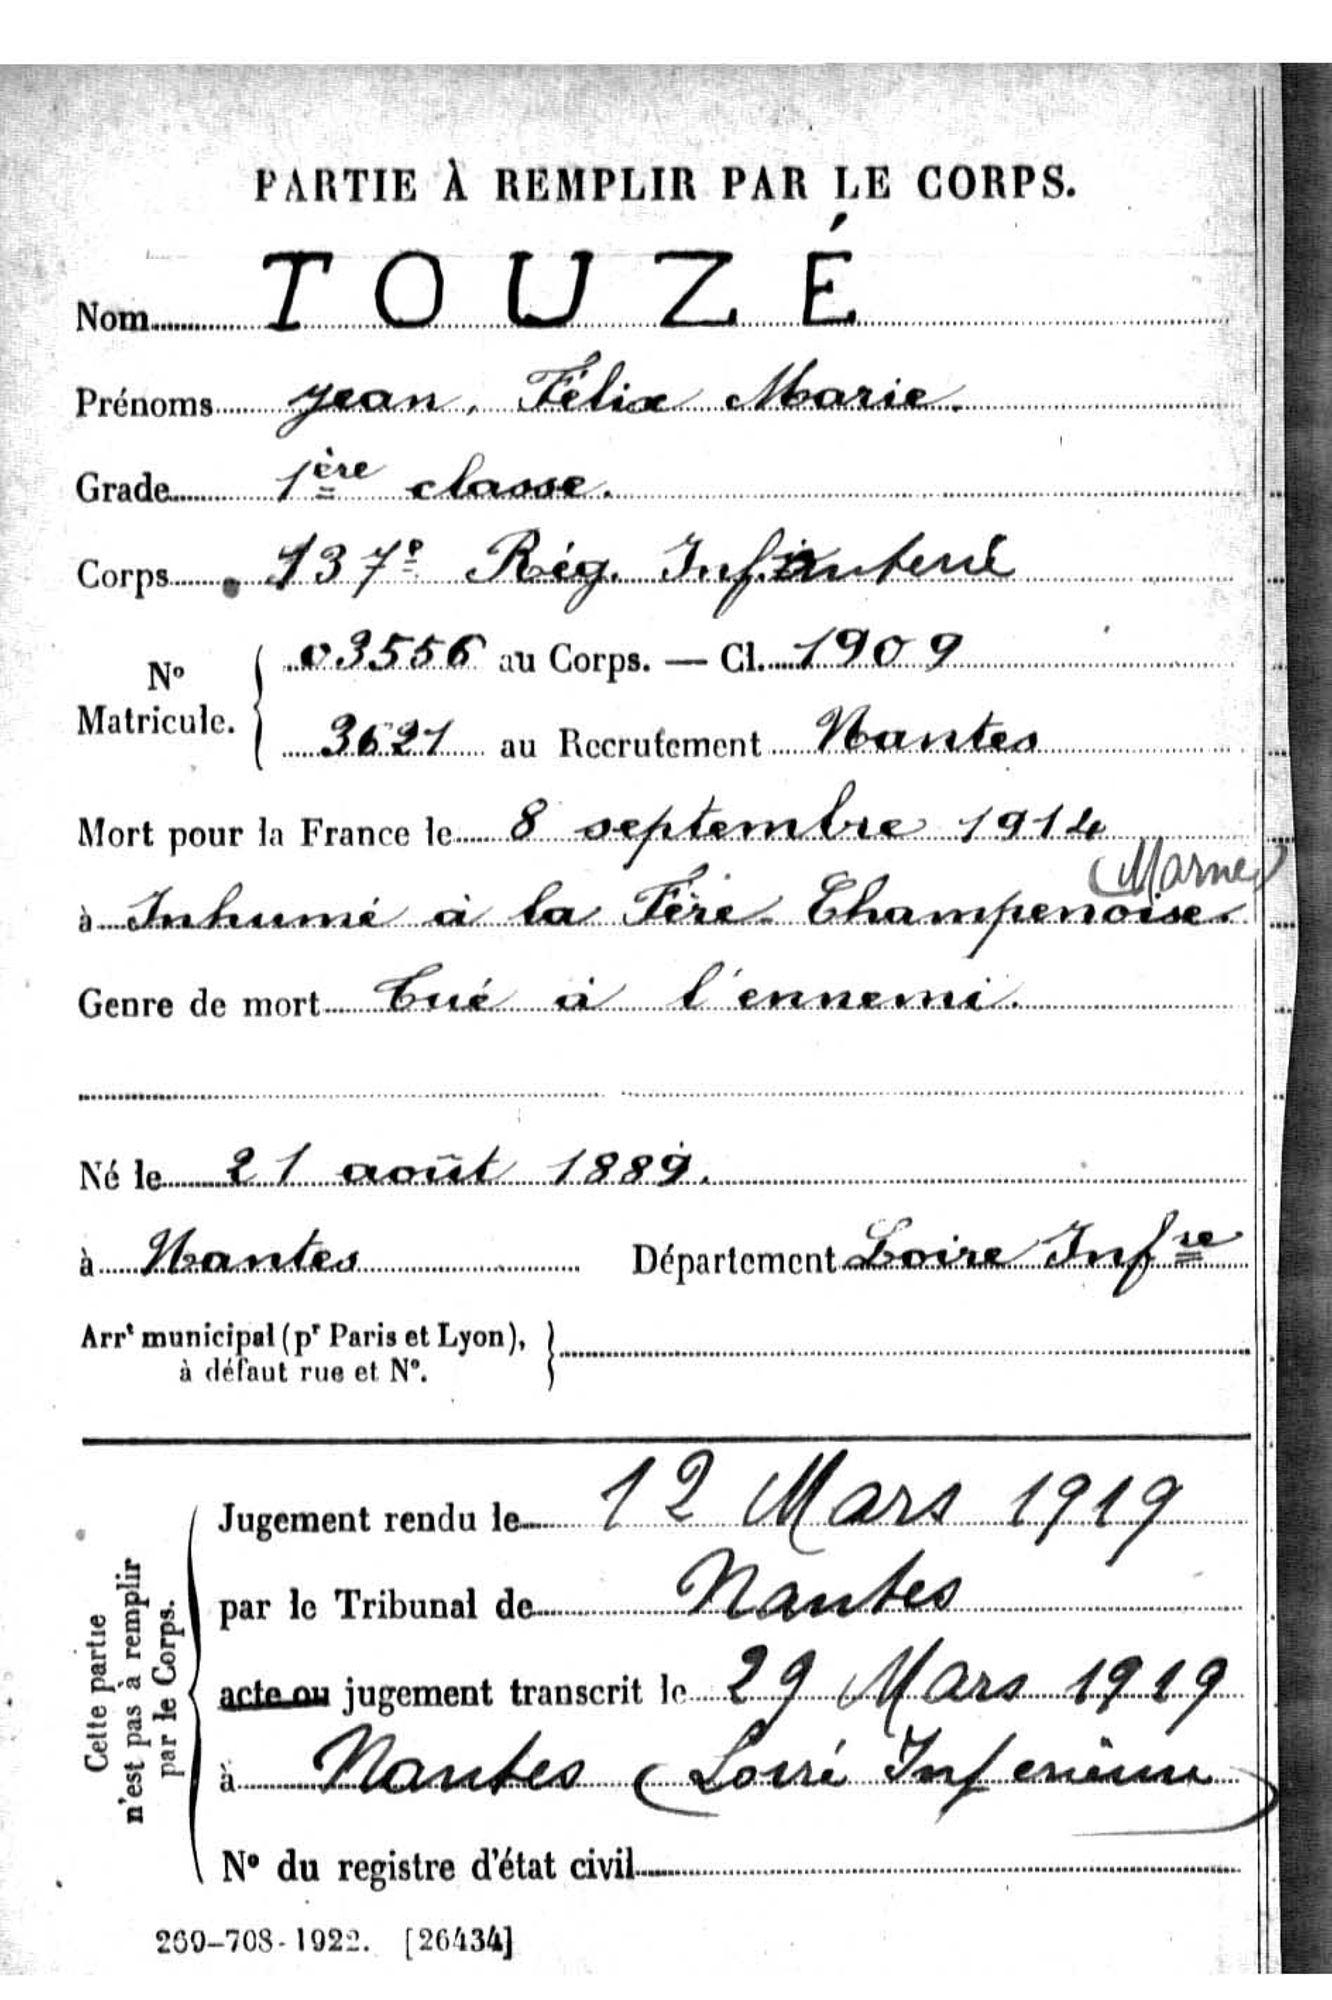 PARTIE À REMPLIR PAR LE CORPS.
Nom TOUZÉ
Prénoms Jean, Félix Marie.
Grade 1ère classe.
Corps 137e Rég. Infanterie
No Matricule. { 03556 au Corps. — Cl. 1909
3621 au Recrutement Nantes
Mort pour la France le 8 septembre 1914
(Marne)
à Inhumé à la Fère-Champenoise.
Genre de mort Tué à l'ennemi.
Né le 21 août 1889.
à Nantes Département Loire Infre
Arrt municipal (pr Paris et Lyon), }
à défaut rue et No.
Cette partie
n'est pas à remplir
par le Corps.
Jugement rendu le 12 Mars 1919
par le Tribunal de Nantes
acte ou jugement transcrit le 29 Mars 1919
à Nantes (Loire Inferieure)
No du registre d'état civil
269-708-1922. [26434]